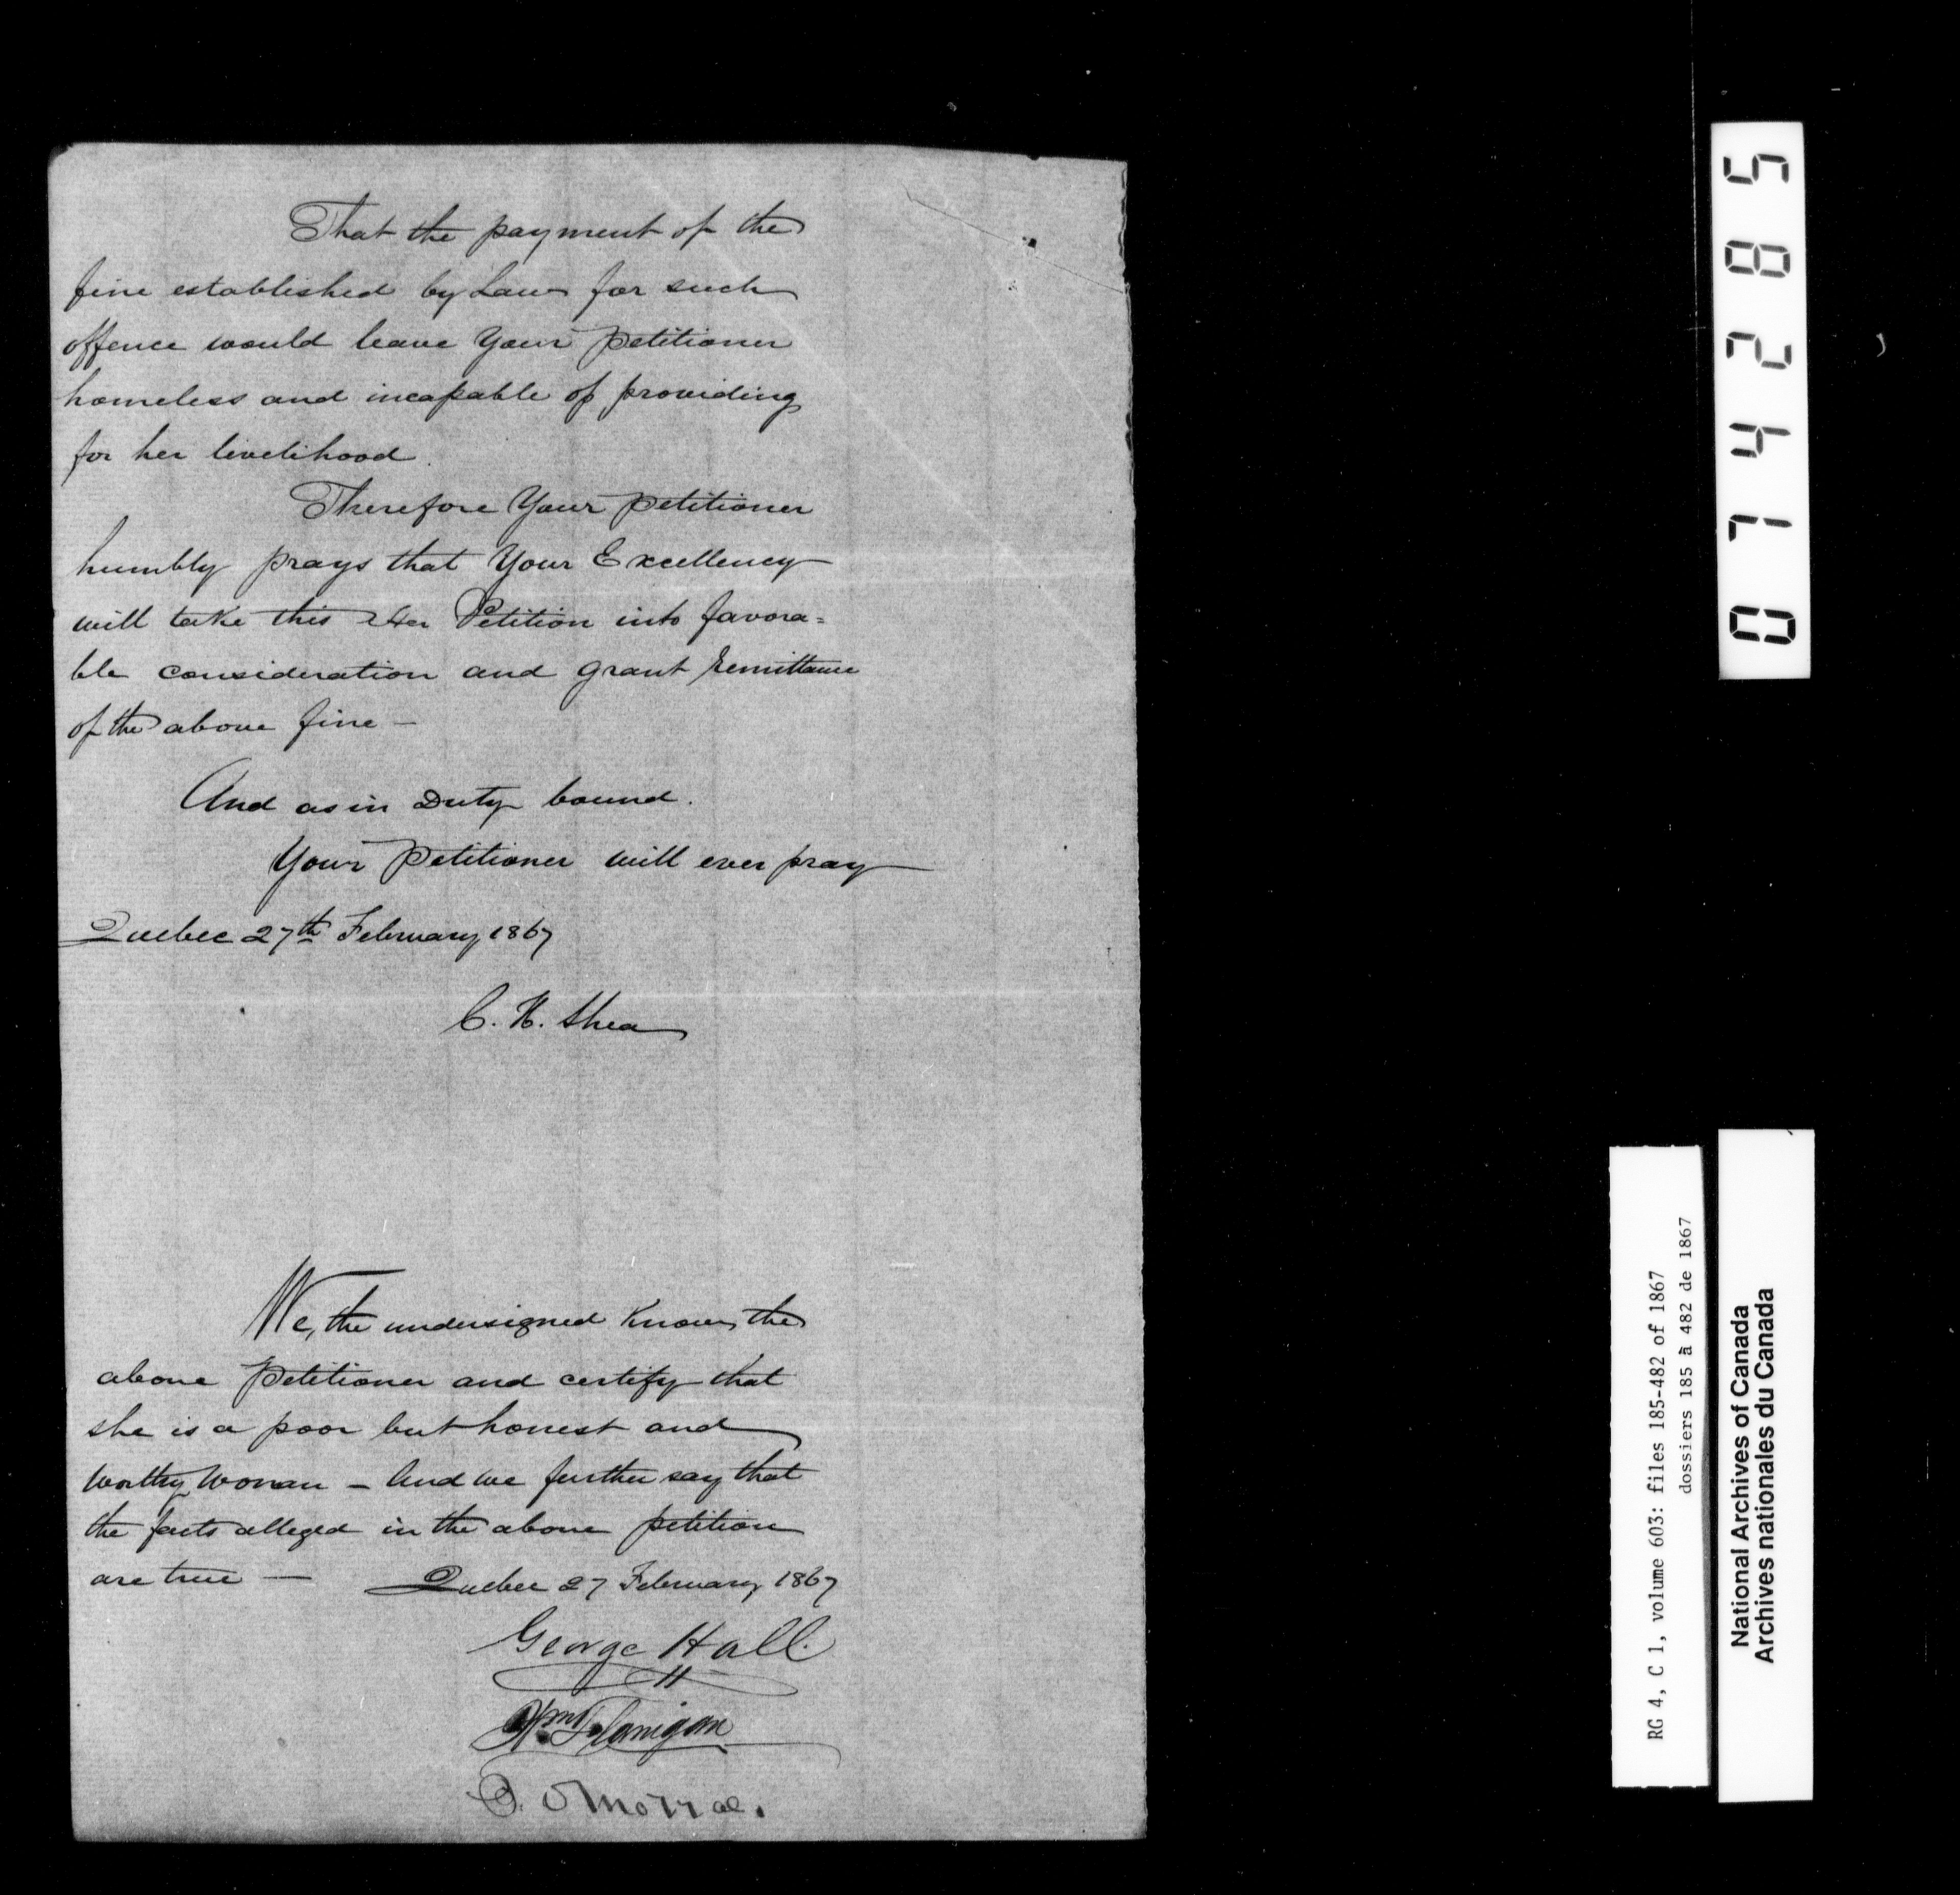 That the payment of the
fine established by Law for such
offence would leave Your Petitioner
homeless and incapable of providing
for her livelihood.
Therefore Your Petitioner
humbly prays that Your Excellency
will take this Her Petition into favora=
ble consideration and grant Remittance
of the above fine —
And as in Duty bound.
Your Petitioner will ever pray
Quebec 27th February 1867
C. H. Shea
We, the undersigned Know the
above Petitioner and certify that
she is a poor but honest and
worthy woman — And we further say that
the facts alleged in the above petition
are true — Quebec 27 February 1867
George Hall
Wm Flanigan
074285
RG 4, C 1, volume 603: files 185-482 of 1867
dossiers 185 à 482 de 1867
National Archives of Canada
Archives nationales du Canada